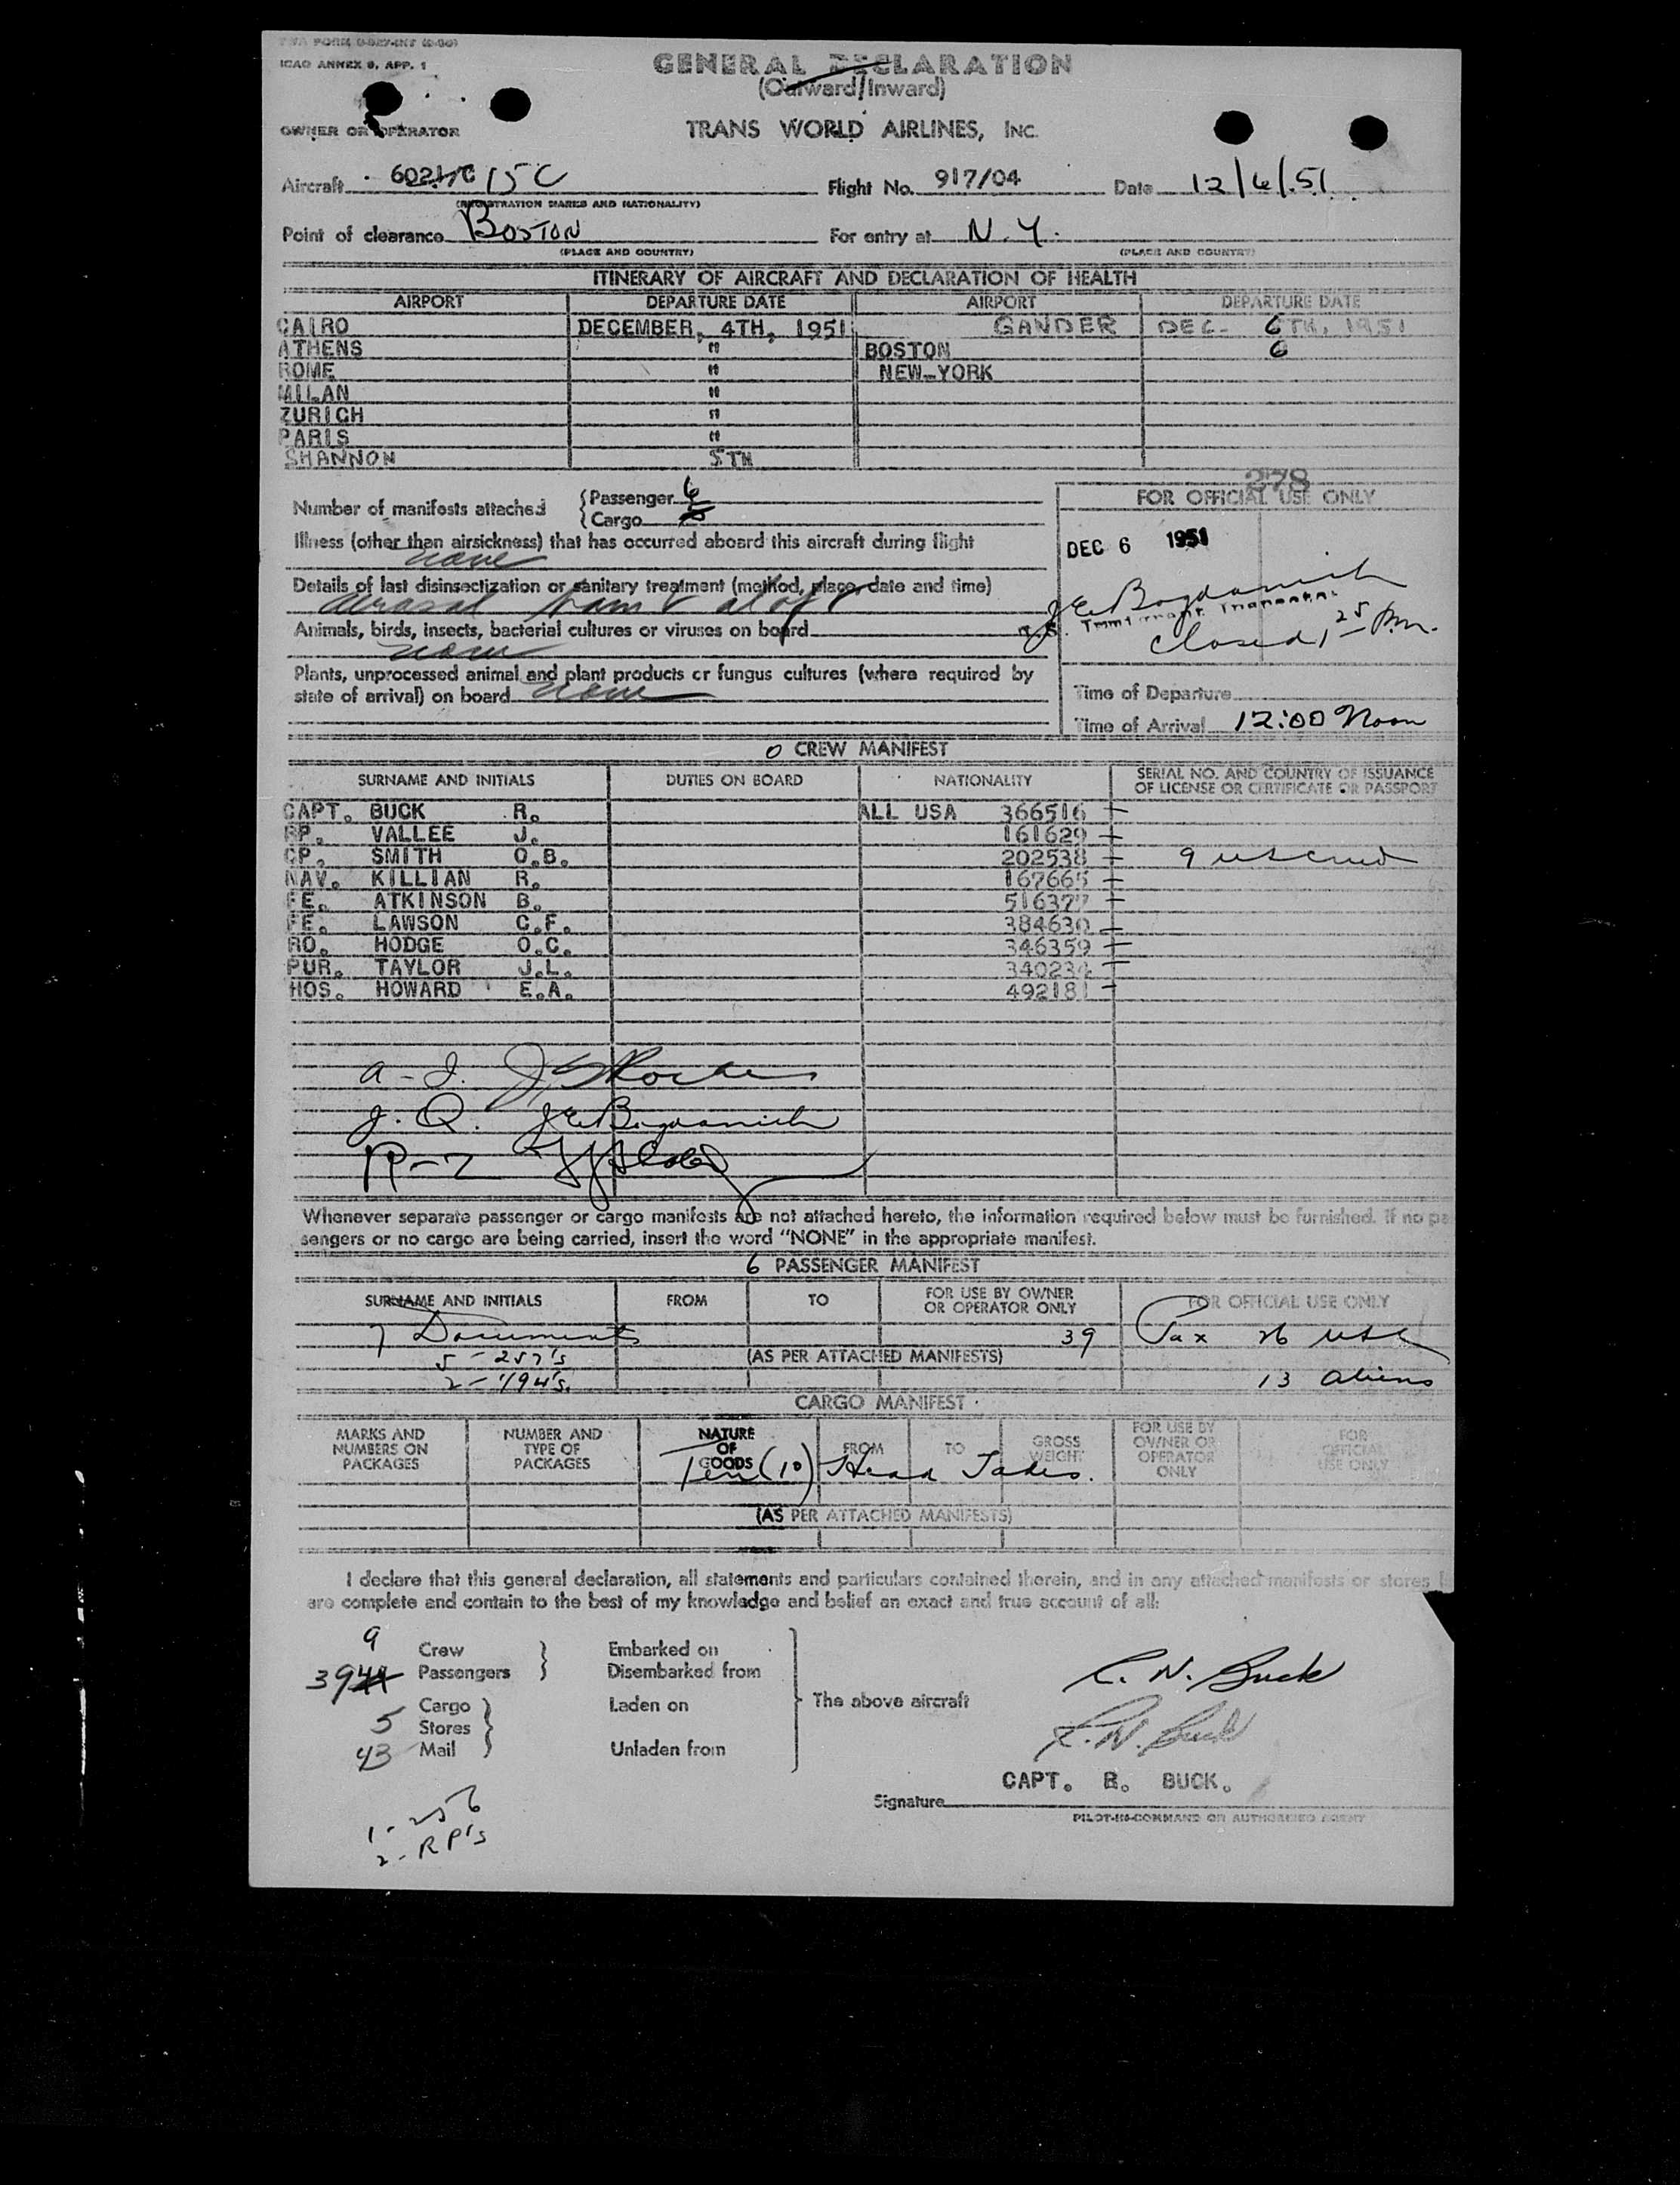 TWA FORM
ICAO ANNEX 9, APP. 1
GENERAL DECLARATION
(Outward/Inward)
OWNER OR OPERATOR
TRANS WORLD AIRLINES, INC.
Aircraft 15C Flight No. 917/04 Date 12/6/51
(REGISTRATION MARKS AND NATIONALITY)
Point of clearance BOSTON For entry at N.Y.
(PLACE AND COUNTRY) (PLACE AND COUNTRY)
ITINERARY OF AIRCRAFT AND DECLARATION OF HEALTH
AIRPORT DEPARTURE DATE AIRPORT DEPARTURE DATE
CAIRO DECEMBER, 4TH, 1951 GANDER DEC. 6TH, 1951
ATHENS " BOSTON 6
ROME " NEW-YORK
MILAN "
ZURICH "
PARIS "
SHANNON 5TH
278
Number of manifests attached
Passenger 6
Cargo
FOR OFFICIAL USE ONLY
Illness (other than airsickness) that has occurred aboard this aircraft during flight
none
DEC 6 1951
Details of last disinsectization or sanitary treatment (method, place, date and time)
J E Bogdanich
Closed 1 25 P.m.
Animals, birds, insects, bacterial cultures or viruses on board
none
Plants, unprocessed animal and plant products or fungus cultures (where required by
state of arrival) on board none
Time of Departure
Time of Arrival 12:00 Noon
0 CREW MANIFEST
SURNAME AND INITIALS DUTIES ON BOARD NATIONALITY SERIAL NO. AND COUNTRY OF ISSUANCE
OF LICENSE OR CERTIFICATE OR PASSPORT
CAPT. BUCK R. ALL USA 366516 —
RP. VALLEE J. 161629 —
CP. SMITH O.B. 202538 — 9
NAV. KILLIAN R. 167665 —
FE. ATKINSON B. 516377 —
FE. LAWSON C.F. 384630 —
RO. HODGE O.C. 346359 —
PUR. TAYLOR J.L. 340234 —
HOS. HOWARD E.A. 492181 —
a - I.
J. Q. J E Bogdanich
Whenever separate passenger or cargo manifests are not attached hereto, the information required below must be furnished. If no pas
sengers or no cargo are being carried, insert the word "NONE" in the appropriate manifest.
6 PASSENGER MANIFEST
SURNAME AND INITIALS FROM TO FOR USE BY OWNER
OR OPERATOR ONLY FOR OFFICIAL USE ONLY
7 Documents 39 Pax 26 USC
5 - 257's (AS PER ATTACHED MANIFESTS)
2 - I94's. 13 aliens
CARGO MANIFEST
MARKS AND NUMBERS ON PACKAGES
NUMBER AND TYPE OF PACKAGES
NATURE OF GOODS
FROM
TO
GROSS WEIGHT
FOR USE BY OWNER OR OPERATOR ONLY
FOR OFFICIAL USE ONLY
Ten (10) Head Taxes.
(AS PER ATTACHED MANIFESTS)
I declare that this general declaration, all statements and particulars contained therein, and in any attached manifests or stores
are complete and contain to the best of my knowledge and belief an exact and true account of all:
9 Crew Embarked on
39 Passengers Disembarked from
Cargo Laden on
5 Stores
43 Mail Unladen from
The above aircraft
R. N. Buck
R. N. Buck
CAPT. R. BUCK.
Signature
PILOT-IN-COMMAND OR AUTHORIZED AGENT
1 - 256
2 - RP's